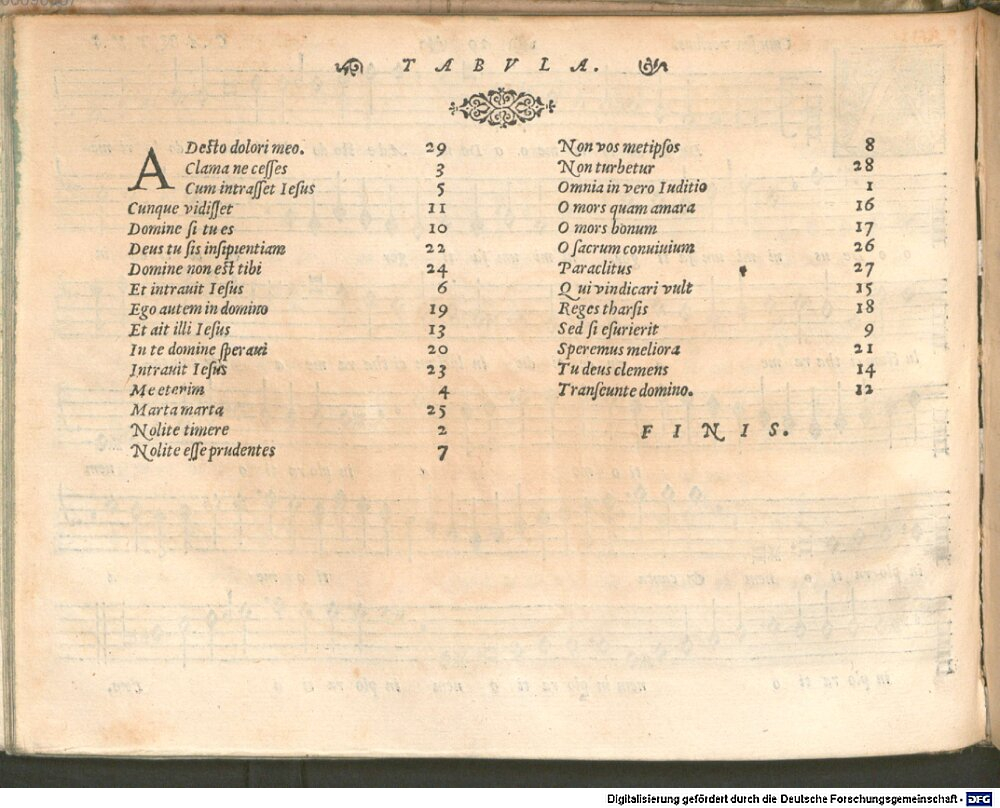 TABVLA.
ADesto dolori meo. 29
Clama ne cesses 3
Cum intrasset Iesus 5
Cunque vidisset 11
Domine si tu es 10
Deus tu sis insipientiam 22
Domine non est tibi 24
Et intrauit Iesus 6
Ego autem in domino 19
Et ait illi Iesus 13
In te domine speraui 20
Intrauit Iesus 23
Me etenim 4
Marta marta 25
Nolite timere 2
Nolite esse prudentes 7
Non vos metipsos 8
Non turbetur 28
Omnia in vero Iuditio 1
O mors quam amara 16
O mors bonum 17
O sacrum conuiuium 26
Paraclitus 27
Qui vindicari vult 15
Reges tharsis 18
Sed si esurierit 9
Speremus meliora 21
Tu deus clemens 14
Transeunte domino. 12
FINIS.
Digitalisierung gefördert durch die Deutsche Forschungsgemeinschaft - DFG